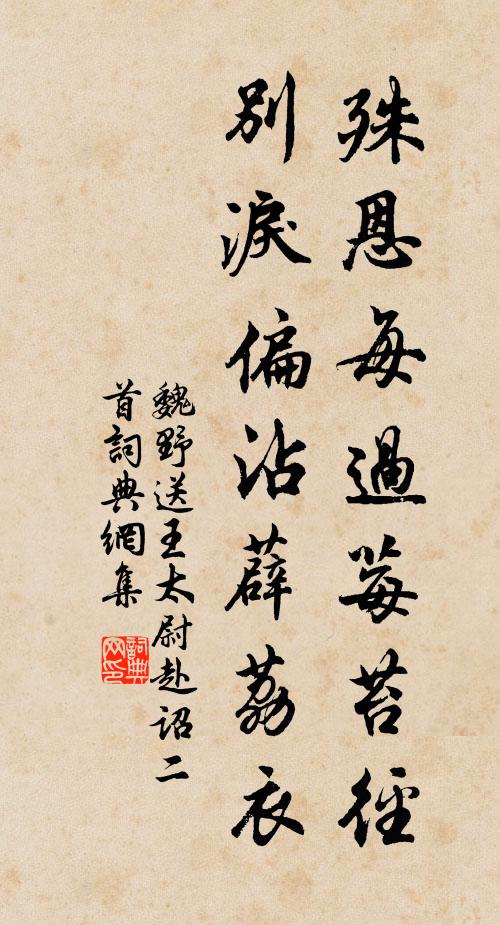 殊恩每過莓苔徑
別淚偏沾薜荔衣
魏野送王太尉赴詔二
首詞典網集
詞典网印